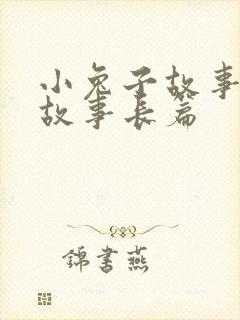 小兔子故事
故事长篇
錦書燕